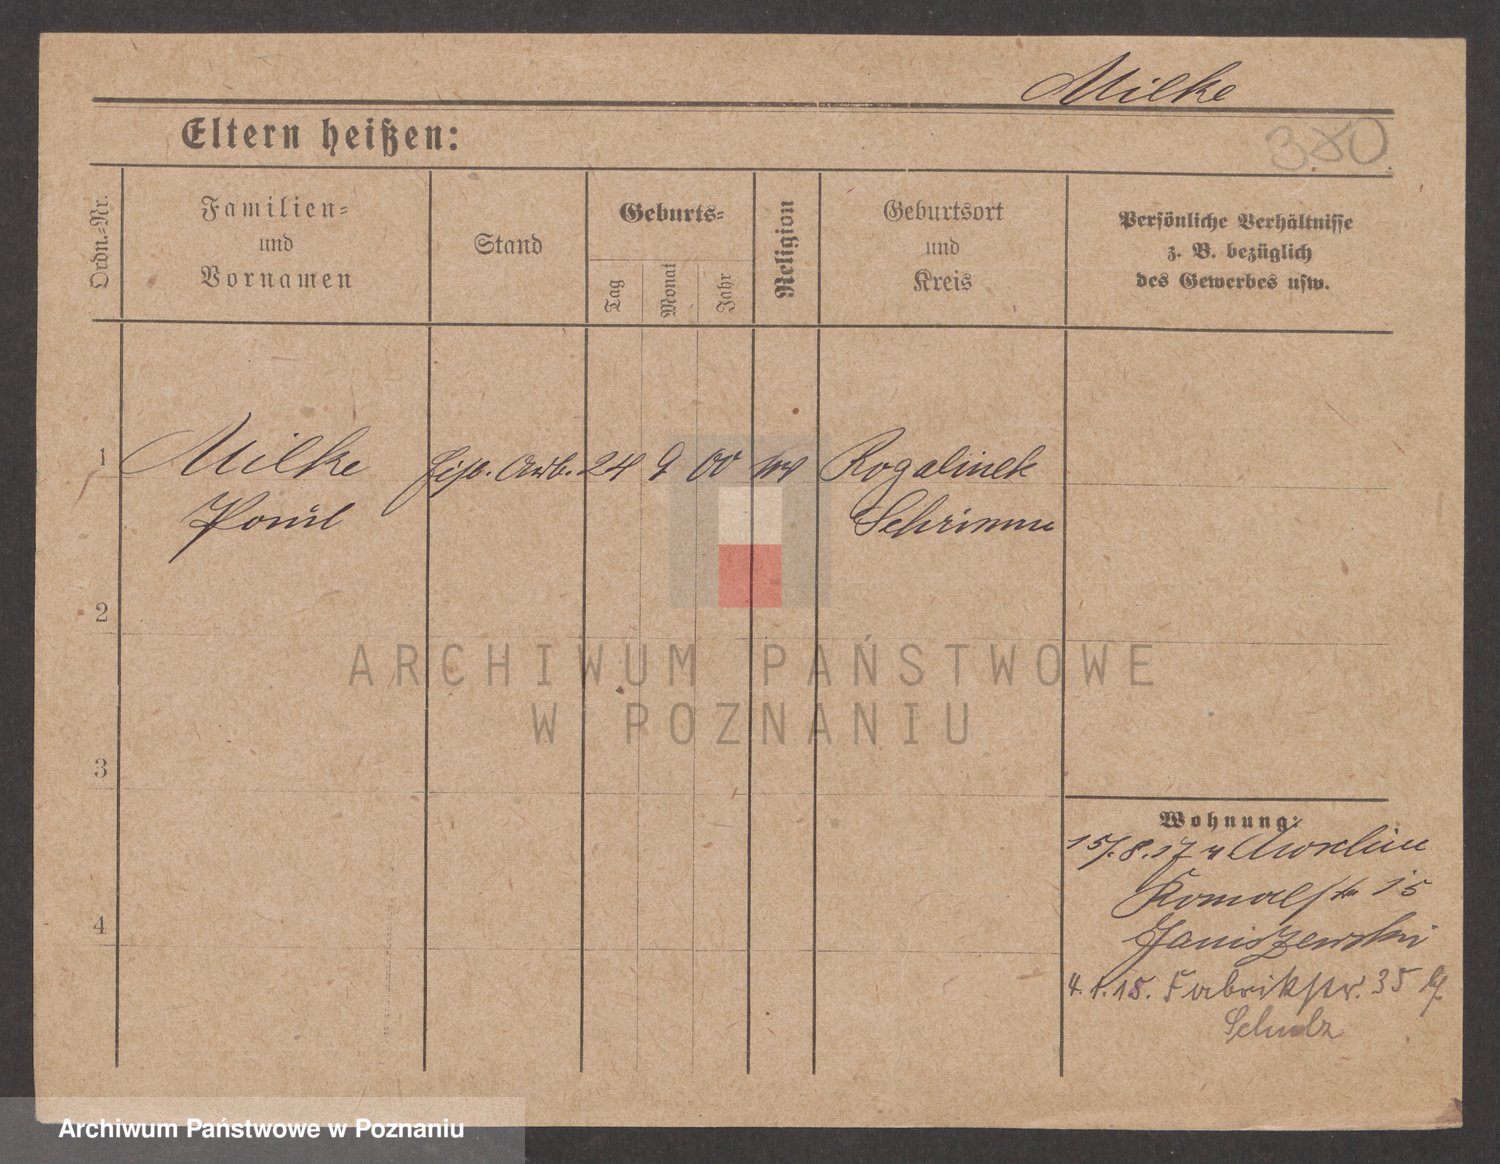 Milke
Eltern heißen:
380
Ordn.-Nr.
Familien-
und
Vornamen
Stand
Geburts-
Tag
Monat
Jahr
Religion
Geburtsort
und
Kreis
Persönliche Verhältnisse
z. B. bezüglich
des Gewerbes usw.
1 Milke Arb. 24 9 00 Rogalinek
Paul Schrimm
2
3
4
Wohnung:
15/.8.17
15
Janiszewski
4.1.18. Fabrikstr. 35
Schulz
ARCHIWUM PAŃSTWOWE
W POZNANIU
Archiwum Państwowe w Poznaniu